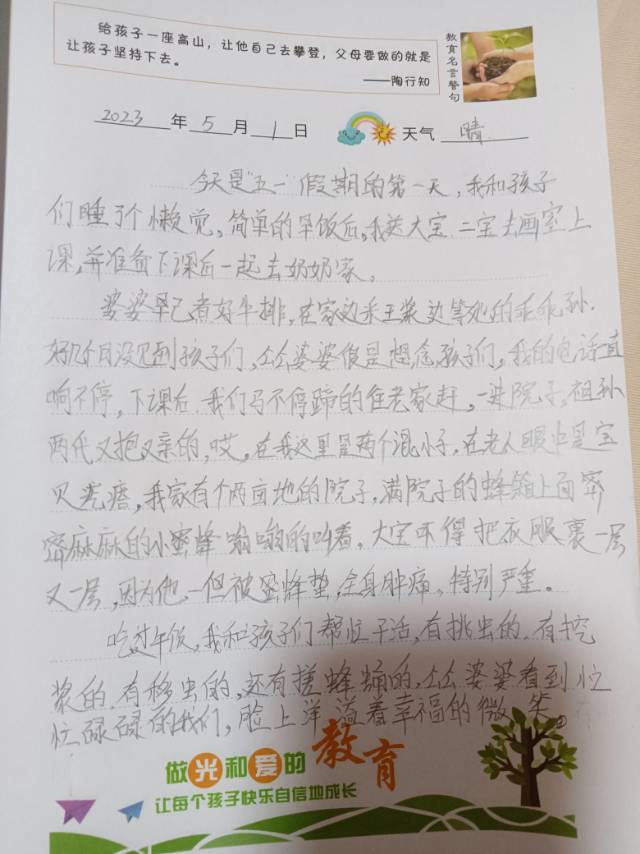 给孩子一座高山，让他自己去攀登，父母要做的就是
让孩子坚持下去。
——陶行知
教育名言警句
2023年5月1日 天气 晴
今天是"五一"假期的第一天，我和孩子
们睡了个懒觉，简单的早饭后，我送大宝.二宝去画室上
课，并准备下课后一起去奶奶家。
婆婆早已煮好牛排，在家边采王浆边等她的乖乖孙.
好几个月没见到孩子们，公公婆婆很是想念孩子们，我的电话直
响不停，下课后.我们马不停蹄的往老家赶，一进院子，祖孙
两代又抱又亲的，哎，在我这里是两个混小子，在老人眼中是宝
贝疙瘩，我家有个两亩地的院子，满院子的蜂箱上面密
密麻麻的小蜜蜂嗡嗡的叫着，大宝不得把衣服裹一层
又一层，因为他一但被蜜蜂蛰，全身肿痛，特别严重。
吃过午饭，我和孩子们帮忙干活，有挑虫的.有挖
浆的.有移虫的，还有搓蜂蛹的，公公婆婆看到忙
忙碌碌的我们，脸上洋溢着幸福的微笑。
做光和爱的教育
让每个孩子快乐自信地成长